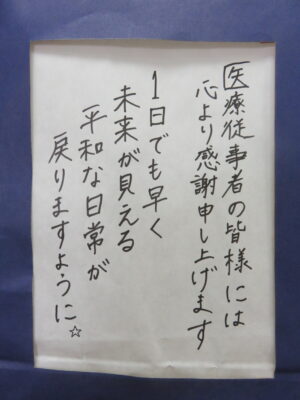 医療従事者の皆様には
心より感謝申し上げます
1日でも早く
未来が見える
平和な日常が
戻りますように☆